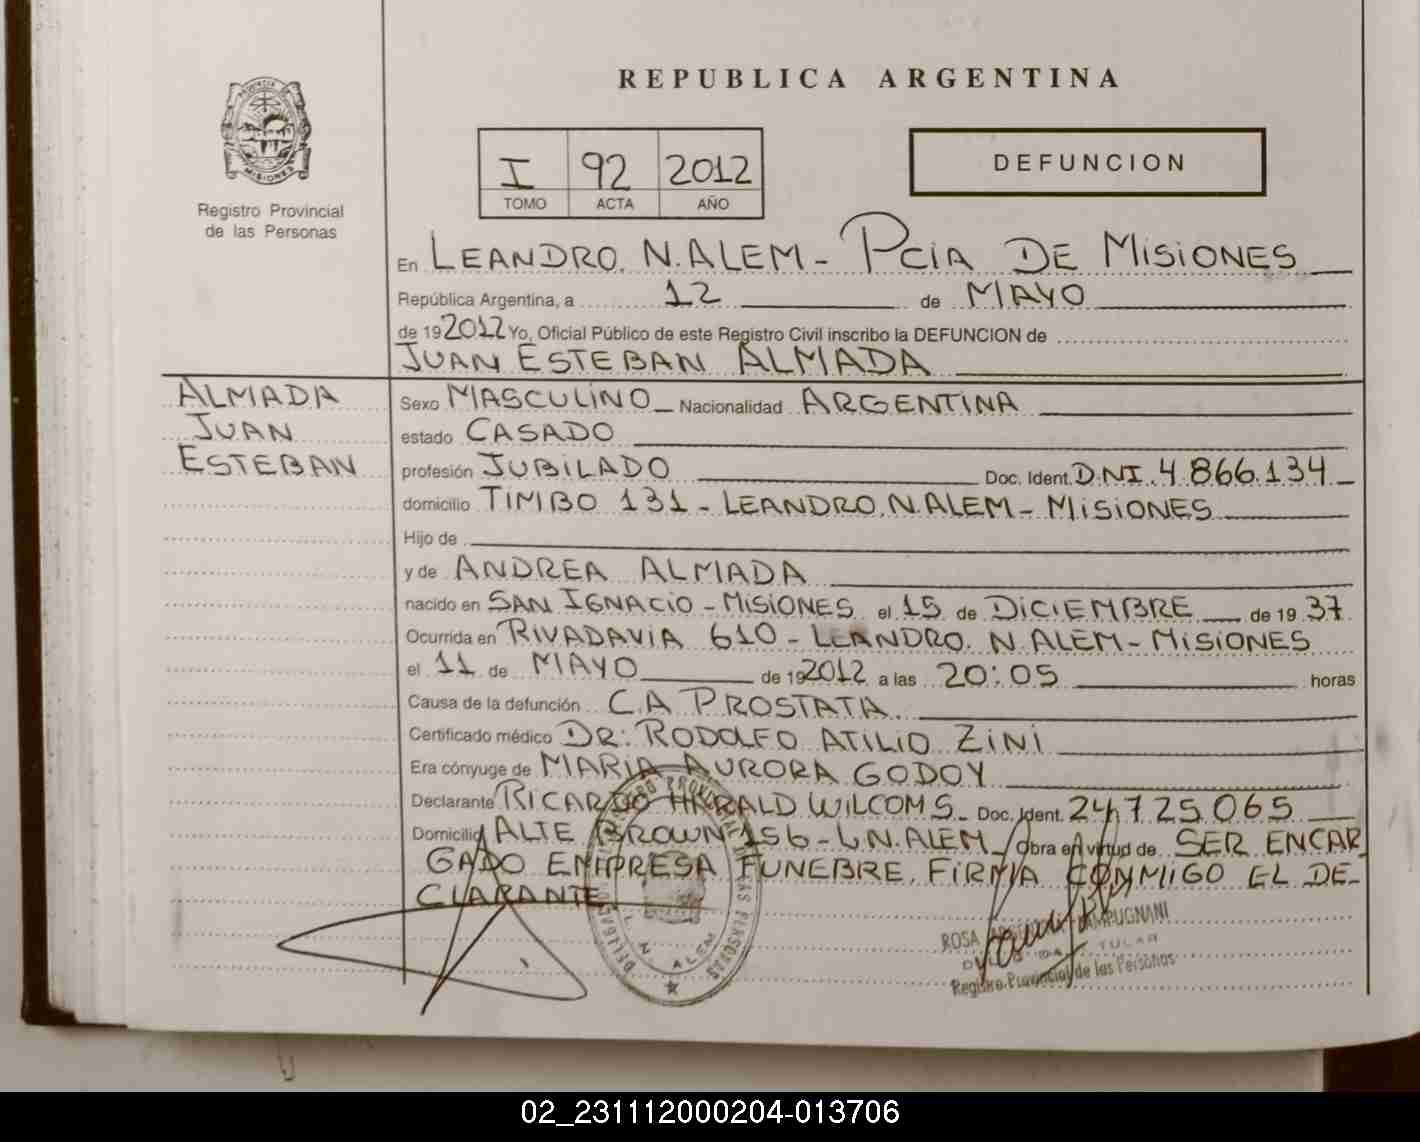 REPUBLICA ARGENTINA
PROVINCIA DE
MISIONES
Registro Provincial
de las Personas
I 92 2012
TOMO ACTA AÑO
DEFUNCION
En LEANDRO. N. ALEM - PCIA DE MISIONES
República Argentina, a 12 de MAYO
de 19 2012 Yo, Oficial Público de este Registro Civil inscribo la DEFUNCION de
JUAN ESTEBAN ALMADA
ALMADA
JUAN
ESTEBAN
Sexo MASCULINO Nacionalidad ARGENTINA
estado CASADO
profesión JUBILADO Doc. Ident. D.NI. 4.866.134
domicilio TIMBO 131 - LEANDRO. N. ALEM - MISIONES
Hijo de
y de ANDREA ALMADA
nacido en SAN IGNACIO - MISIONES el 15 de DICIEMBRE de 19 37
Ocurrida en RIVADAVIA 610 - LEANDRO. N. ALEM - MISIONES
el 11 de MAYO de 19 2012 a las 20:05 horas
Causa de la defunción C.A PROSTATA
Certificado médico DR: RODOLFO ATILIO ZINI
Era cónyuge de MARIA AURORA GODOY
Declarante RICARDO HARALD WILCOMS Doc. Ident. 24.725.065
Domicilio ALTE BROWN 156 - L.N. ALEM Obra en virtud de SER ENCAR
GADO EMPRESA FUNEBRE. FIRMA CONMIGO EL DE-
CLARANTE.
L. N. ALEM
ROSA
TITULAR
Registro Provincial de las Personas
02_231112000204-013706